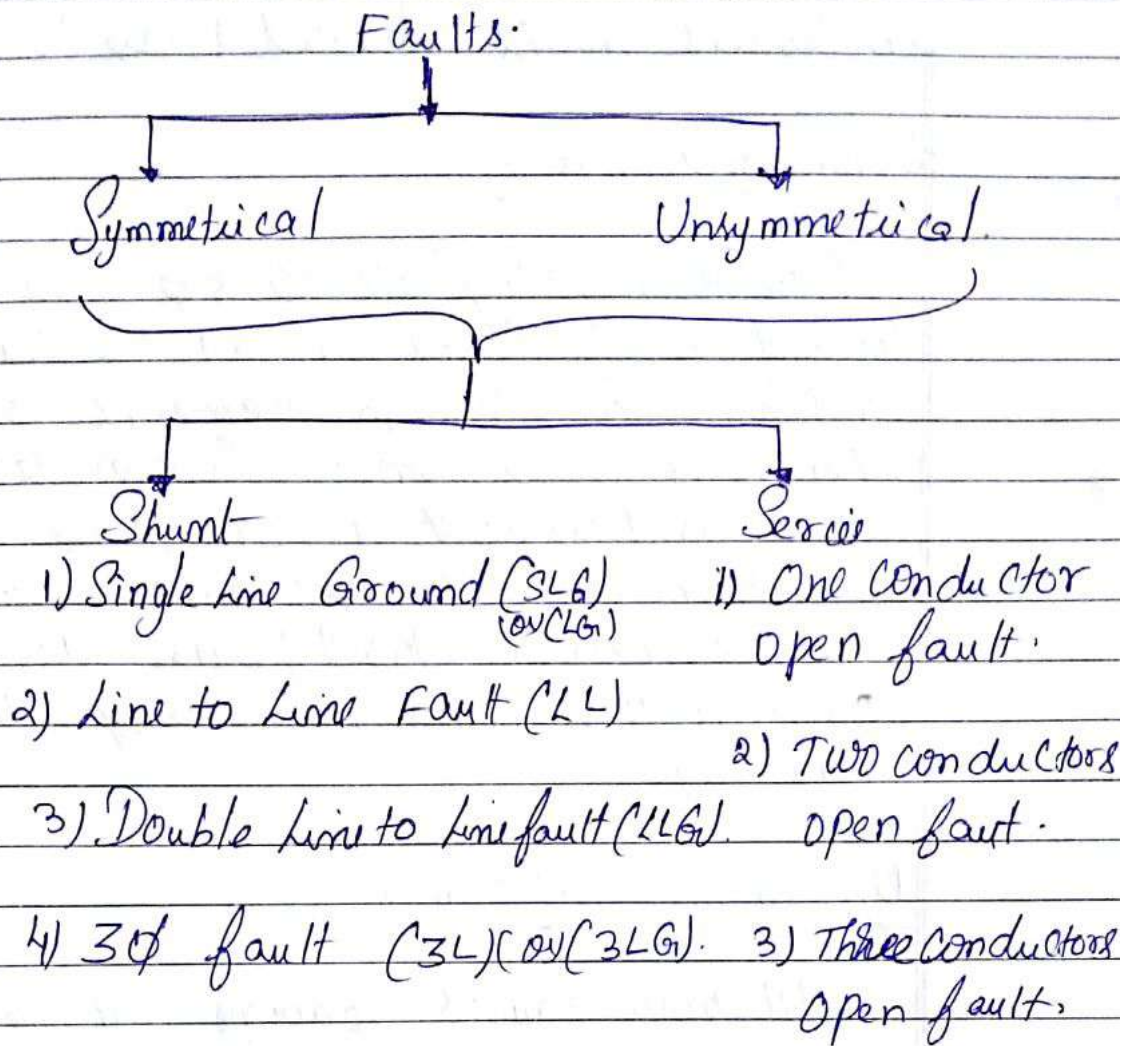 Faults.
Symmetrical
Unsymmetrical.
Shunt
1) Single Line Ground (SLG)
(or(LG)
2) Line to Line Fault (LL)
3) Double Line to Line fault (LLG).
4) 3φ fault (3L)(or(3LG).
Series
1) One conductor
open fault.
2) Two conductors
open faut.
3) Three conductors
open fault.